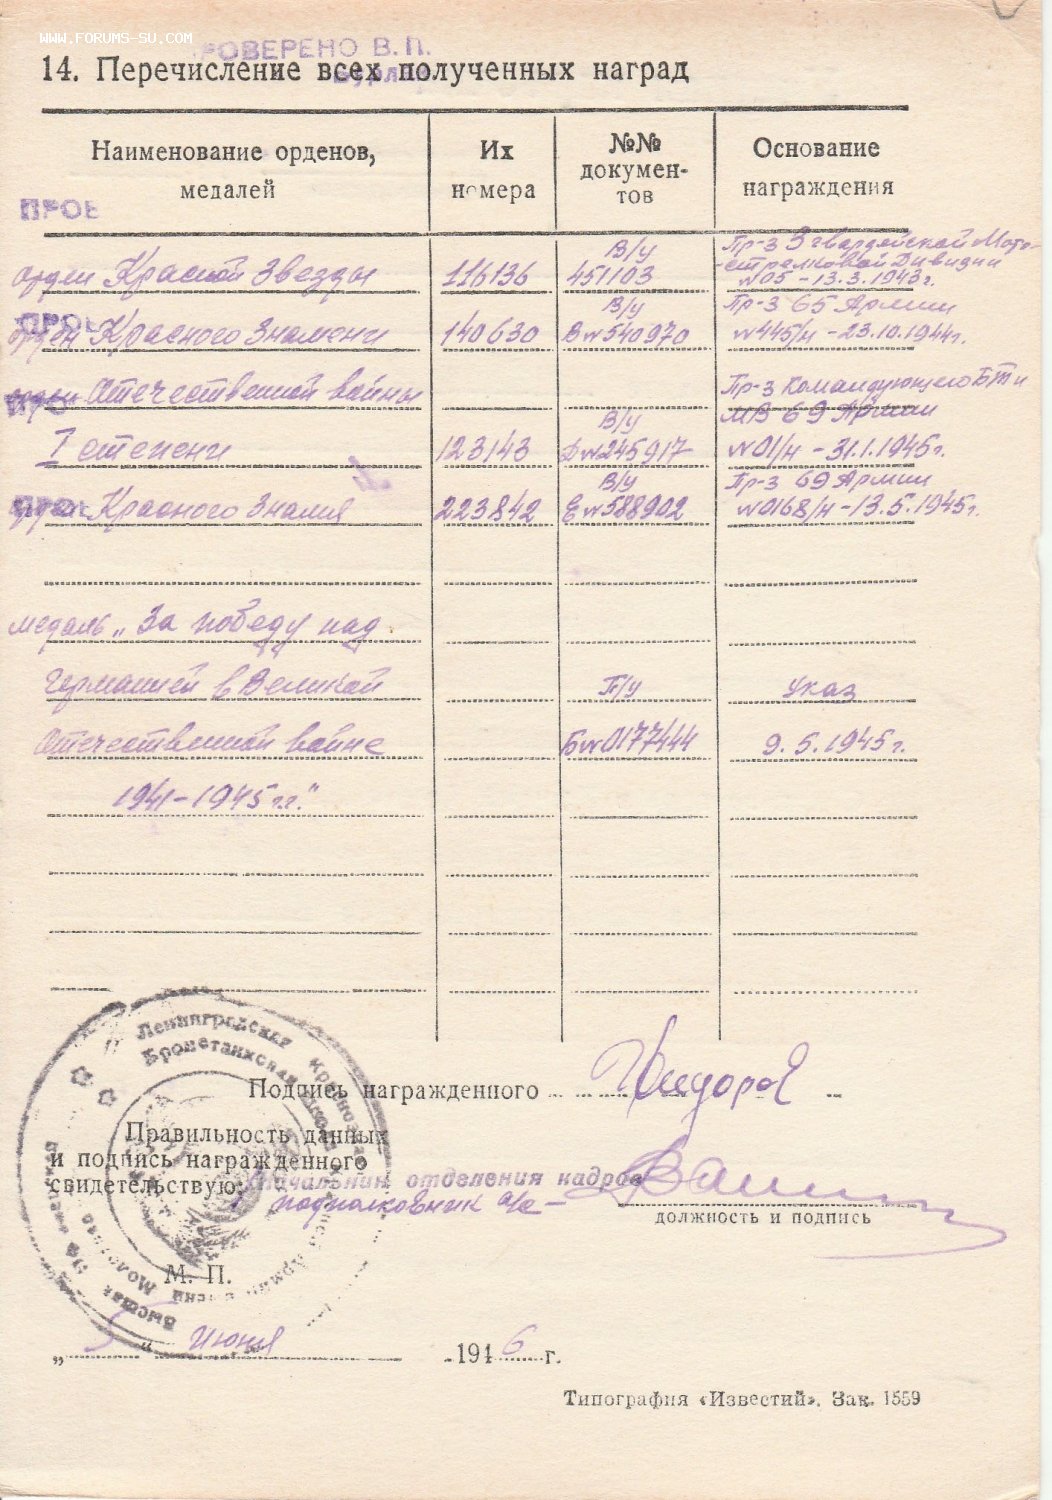 WWW.FORUMS-SU.COM
ПРОВЕРЕНО В. П.
14. Перечисление всех полученных наград
Наименование орденов, медалей
Их номера
№№ докумен-тов
Основание награждения
ПРОВ
орден Красной Звезды 116136 В/у 451103 Пр-з 3 гвардейской Мото-
стрелковой Дивизии
№05 - 13.3.1943г.
ПРОВ
орден Красного Знамени 140630 В/у В№540970 Пр-з 65 Армии
№445/н - 23.10.1944г.
ПРО
орден Отечественной войны Пр-з Командующего БТ и
МВ 69 Армии
I степени 123143 В/у Д№245917 №01/н - 31.1.1945г.
ПРОВ
орден Красного Знамя 223842 В/у Е№588902 Пр-з 69 Армии
№0168/н - 13.5.1945г.
медаль „За победу над
Германией в Великой П/у Указ
Отечественной войне Б№0177444 9.5.1945г.
1941-1945г.г."
Подпись награжденного
Правильность данных
и подпись награжденного
свидетельствую:
Начальник отделения кадров
подполковник а/с -
должность и подпись
М. П.
Ленинградская Краснознаменная
Бронетанковая
Высшая
Молотова
„5" июня 1946 г.
Типография «Известий». Зак. 1559